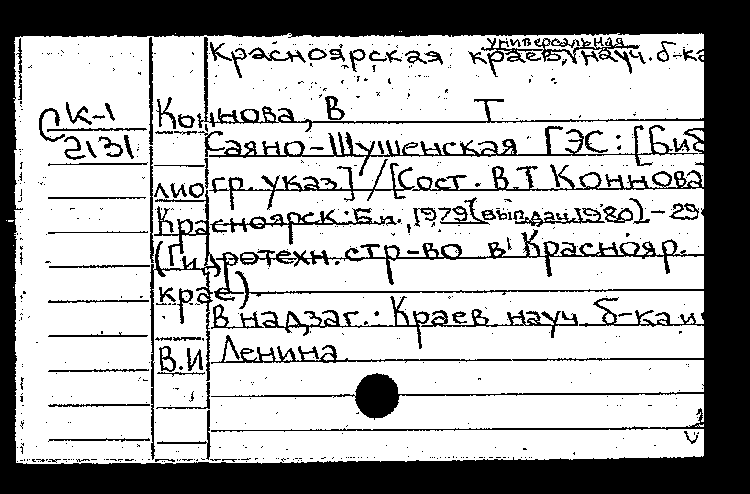 универсальная
Красноярская краев. науч. б-ка
К-1
2131
Коннова, В Т
Саяно-Шушенская ГЭС: [Биб
лиогр. указ] / [Сост. В.Т Коннова
Красноярск: Б.и., 1979 (вып. дан. 1980) - 29
(Гидротехн. стр-во в Краснояр.
крае).
В надзаг.: Краев науч. б-ка и
В.И Ленина